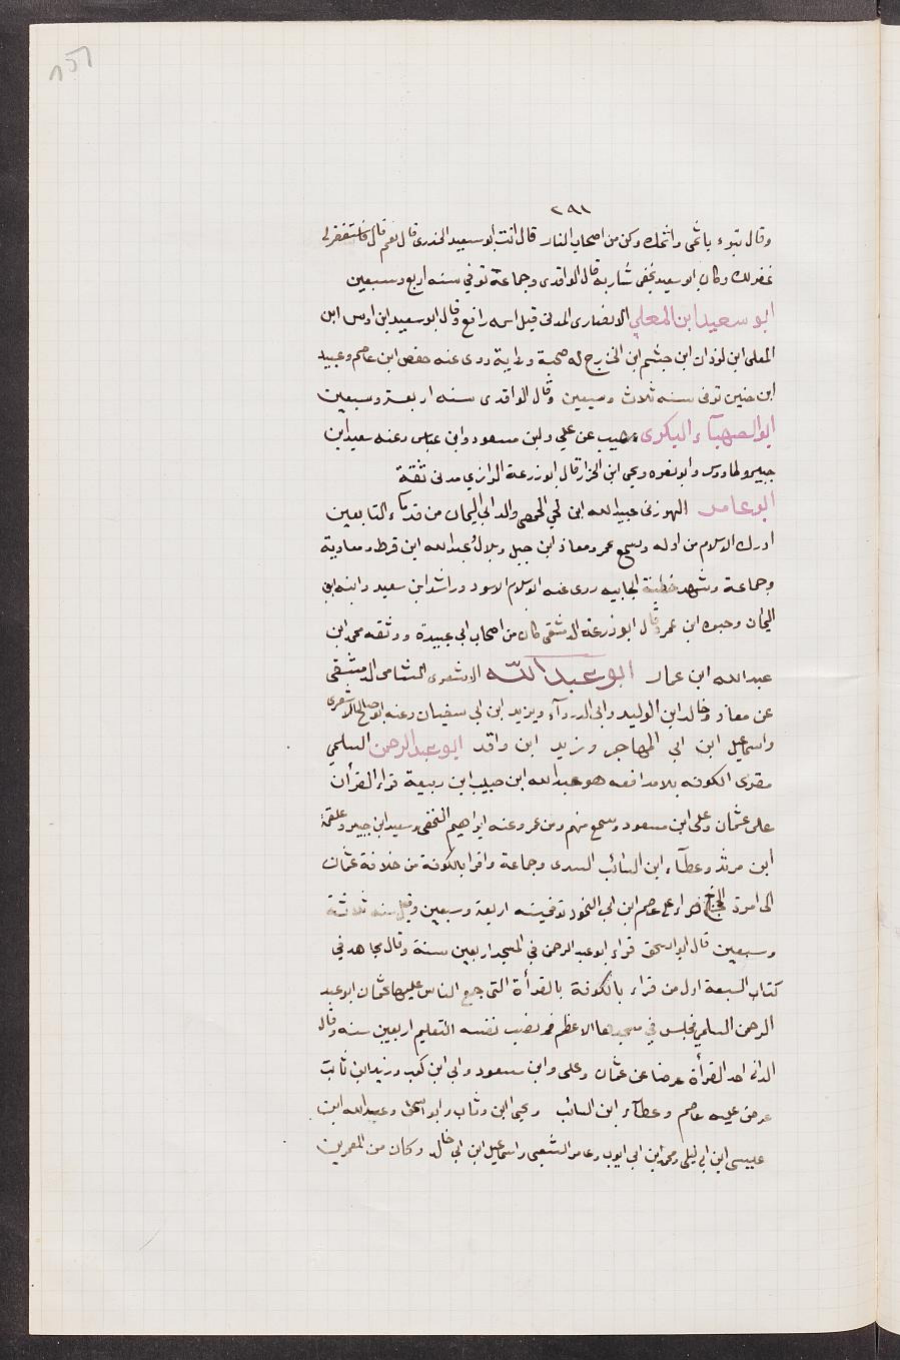 ١٥٦
٢٩١
وقال تبوء باثمى واثمك وكن من اصحاب النار قال انت ابو سعيد الخدرى قال نعم قال فاستغفر لى
غفر لك وكان ابو سعيد يحفى شاربه قال الواقدى وجماعة توفي سنه اربع وسبعين
ابو سعيد ابن المعلي الانصارى المدنى قيل اسمه رافع وقال ابو سعيد ابن اوس ابن
المعلى ابن لوذان ابن جشم ابن الخزرج له صحبة ورواية روى عنه حفص ابن عاصم وعبيد
ابن حنين توفى سنه ثلاث وسبعين وقال الواقدى سنه اربعة وسبعين
ابو الصهبآء البكرى صهيب عن علي وابن مسعود وابن عباس وعنه سعيد ابن
جبير وطاووس وابو نضره ويحيى ابن الجزار قال ابو زرعة الرازي مدنى ثقة
ابو عامر الهوزنى عبيد الله ابن لحي الحمصي والد ابي اليمان من قدمآء التابعين
ادرك الاسلام من اوله وسمع عمر ومعاذ ابن جبل وبلال وعبد الله ابن قرط ومعاوية
وجماعة وشهد خطبة الجابيه روى عنه ابو سلام الاسود وراشد ابن سعيد وابنه ابو
اليمان وحبوه ابن عمر وقال ابو زرعة الدمشقى كان من اصحاب ابى عبيدة ووثقه محمد ابن
عبد الله ابن عمار ابو عبد الله الاشعرى الشامى الدمشقى
عن معاذ وخالد ابن الوليد وابى الدردآء ويزيد ابن ابى سفيان وعنه ابو صالح الاشعرى
واسماعيل ابن ابى المهاجر وزيد ابن واقد ابو عبد الرحمن السلمي
مقرى الكوفه بلا مدافعه هو عبد الله ابن حبيب ابن ربيعة قراء القرأن
على عثمان وعلى ابن مسعود وسمع منهم ومن عمر وعنه ابراهيم النخفى وسعيد ابن جبير وعلقمة
ابن مرثد وعطآء ابن السائب السدى وجماعة واقرا بالكوفة من خلافة عثمان
الى امرة الحجاج قراء علي عاصم ابن ابى النجود توفى سنه اربعة وسبعين وقيل سنه ثلاثة
وسبعين قال ابو اسحق قراء ابو عبد الرحمن في المسجد اربعين سنة وقال مجاهد في
كتاب السبعة اول من قراء بالكوفة بالقرأة التى جمع الناس عليها عثمان ابو عبد
الرحمن السلمي فجلس في مسجدها الاعظم فنصب نفسه التعليم اربعين سنه وقال
الدانى احد القرأة عرضا عن عثمان وعلى وابن مسعود وابى ابن كعب وزيد ابن ثابت
عرض عليه عاصم وعطآء ابن السائب ويحيى ابن وثاب وابو اسحق وعبد الله ابن
عيسى ابن ابى ليلى ومحمد ابن ابى ايوب وعامر الشعبى واسماعيل ابن ابى خالد وكان من المعمرين